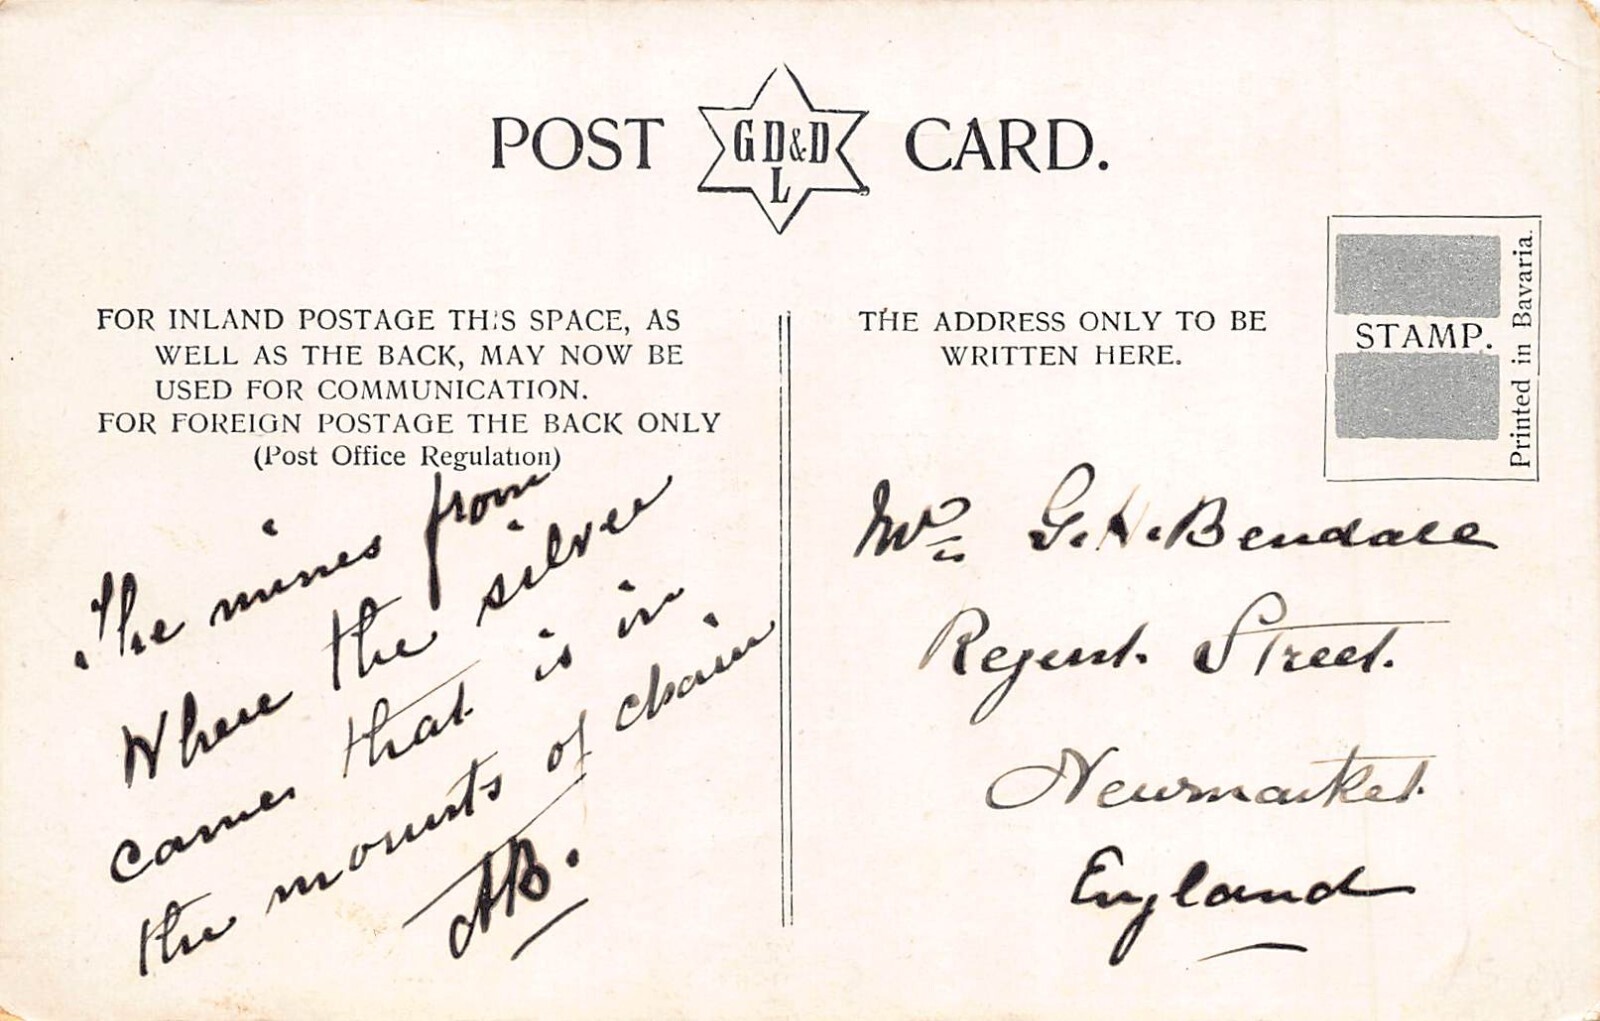 POST GD&D L CARD.
FOR INLAND POSTAGE THIS SPACE, AS
WELL AS THE BACK, MAY NOW BE
USED FOR COMMUNICATION.
FOR FOREIGN POSTAGE THE BACK ONLY
(Post Office Regulation)
The mines from
where the silver
comes that is in
the mounts of chain
AB.
THE ADDRESS ONLY TO BE
WRITTEN HERE.
STAMP.
Printed in Bavaria.
Mr G. H. Bendall
Regent Street.
Newmarket.
England